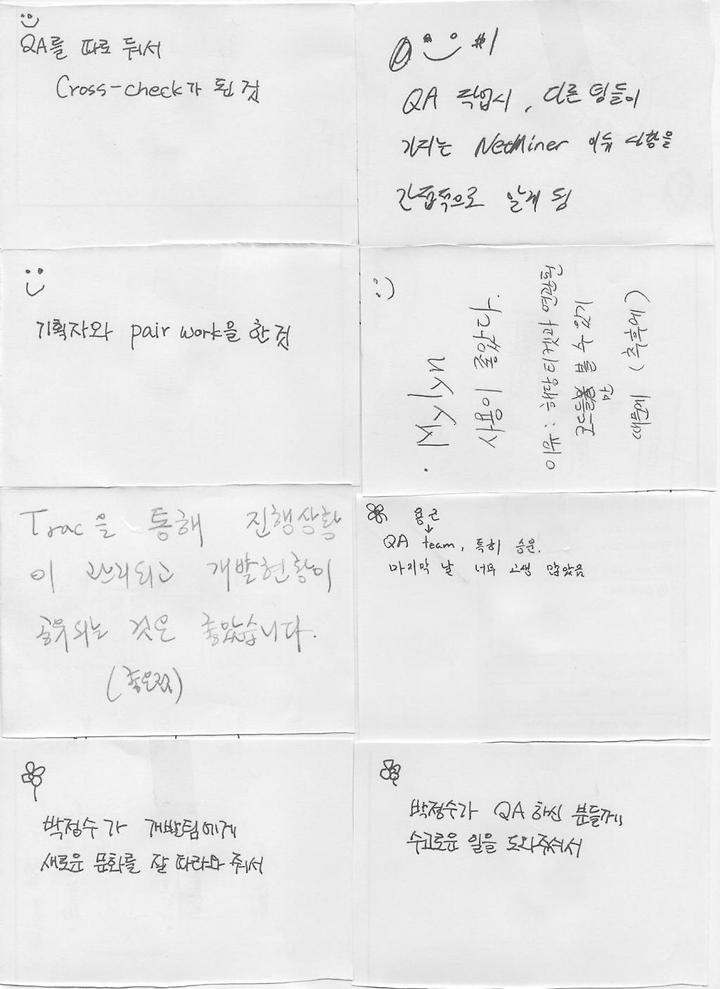 QA를 따로 둬서
Cross-check가 된 것
#1
QA 작업시, 다른 팀들이
가지는 NetMiner 이슈 상황을
간접적으로 알게 됨
기획자와 pair work을 한 것
· Mylyn
사용
(좋은점)
Trac을 통해 진행상황
이 관리되고 개발현황이
공유되는 것은 좋았습니다.
(좋은점)
용근
QA team, 특히 승운.
마지막 날 너무 고생 많았음
박정수가 개발팀에게
새로운 문화를 잘 따라와 줘서
박정수가 QA 하신 분들께
수고로운 일을 도와주셔서